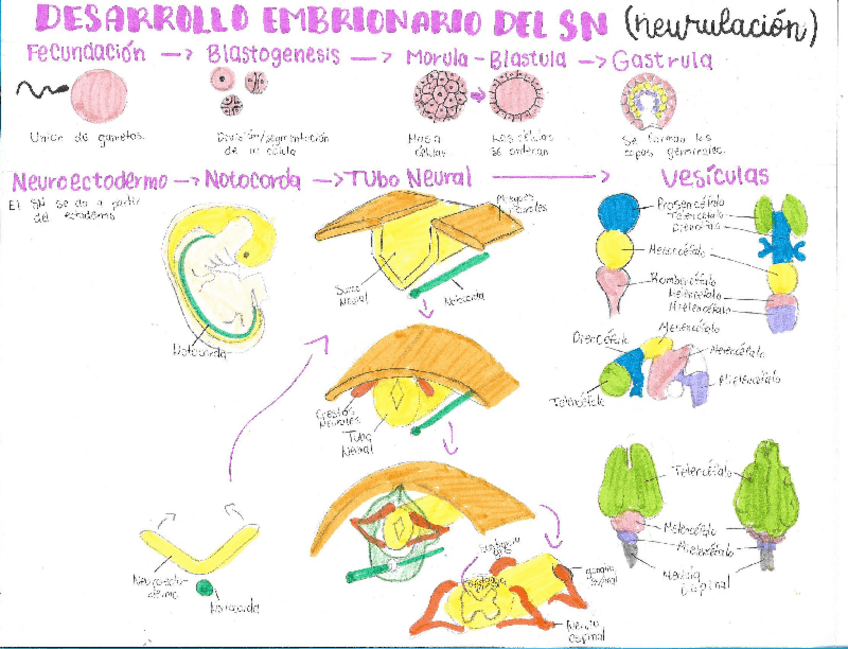 DESARROLLO EMBRIONARIO DEL SN (neurulación)
Fecundación → Blastogenesis → Morula - Blastula → Gastrula
Union de gametos.
División/segmentación
de la célula
Masa
células
Las células
se ordenan
Se forman las
capas germinales.
Neuroectodermo → Notocorda → Tubo Neural → Vesículas
El SN se da a partir
del ectodermo
Notocorda
Surco
Neural
Notocorda
Prosencéfalo
Telencéfalo
Mesencéfalo
Rombencéfalo
Metencéfalo
Mielencéfalo
Mesencéfalo
Diencéfalo
Metencéfalo
Mielencéfalo
Telencéfalo
Crestas
Neurales
Tubo
Neural
Telencéfalo
Metencéfalo
Mielencéfalo
Médula
Espinal
Neuroecto-
dermo
Notocorda
ganglio
espinal
Nervio
espinal